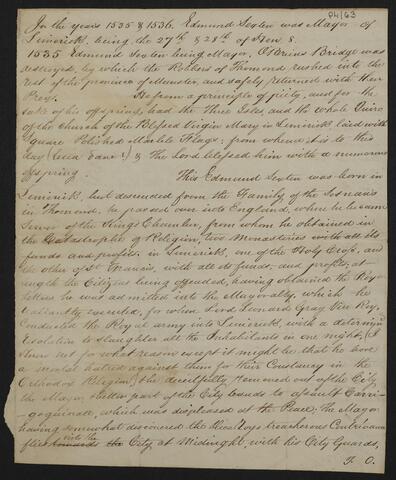 P4/63
In the years 1535 & 1536, Edmund Sexten was Mayor of
Limerick, being the 27th & 28th of Hen 8.
1535 Edmund Sexten being Mayor, OBriens Bridge was
destroyed, by which the Robbers of Thomond, rushed into the
rest of the province of Munster, and safely returned with their
Prey. He from a principle of piety, and for the
sake of his offspring, had the Three Isles, and the whole Quire
of the Church of the Blessed Virgin Mary in Limerick laid with
Square Polished Marble Flags; from whence it is to this
day & the Lord blessed him with a numerous
offspring. This Edmund Sexten was born in
Limerick, but descended from the Family of the
in Thomond, he passed over into England, when he became
Sewer of the Kings Chamber, from whom he obtained in
the Catastrophe of Religion, two Monasteries with all its
funds and profits, in Limerick, one of the Holy Cross, and
the other of St Francis, with all its funds, and profits, at
length the Citizens being offended, having obtained the Royal
letters he was admitted into the Mayoralty, which he
Gallantly executed, for when Lord Leonard Gray Vice Roy
Conducted the Royal army into Limerick, with a determin'd
Resolution to slaughter all the Inhabitants in one night, (I
know not for what reason except it might be that he bore
a mortal hatred against them for their Constancy in the
Orthodox Religion) He deceitfully removed out of the City
the Mayor, better part of the City bands to assault Carri-
gogunnel, which was displeased at the Peace; the Mayor
having somewhat discovered the Vice Roys treacherous Contrivance
flies into the towards the City at Midnight, with his City Guards,
T. O.